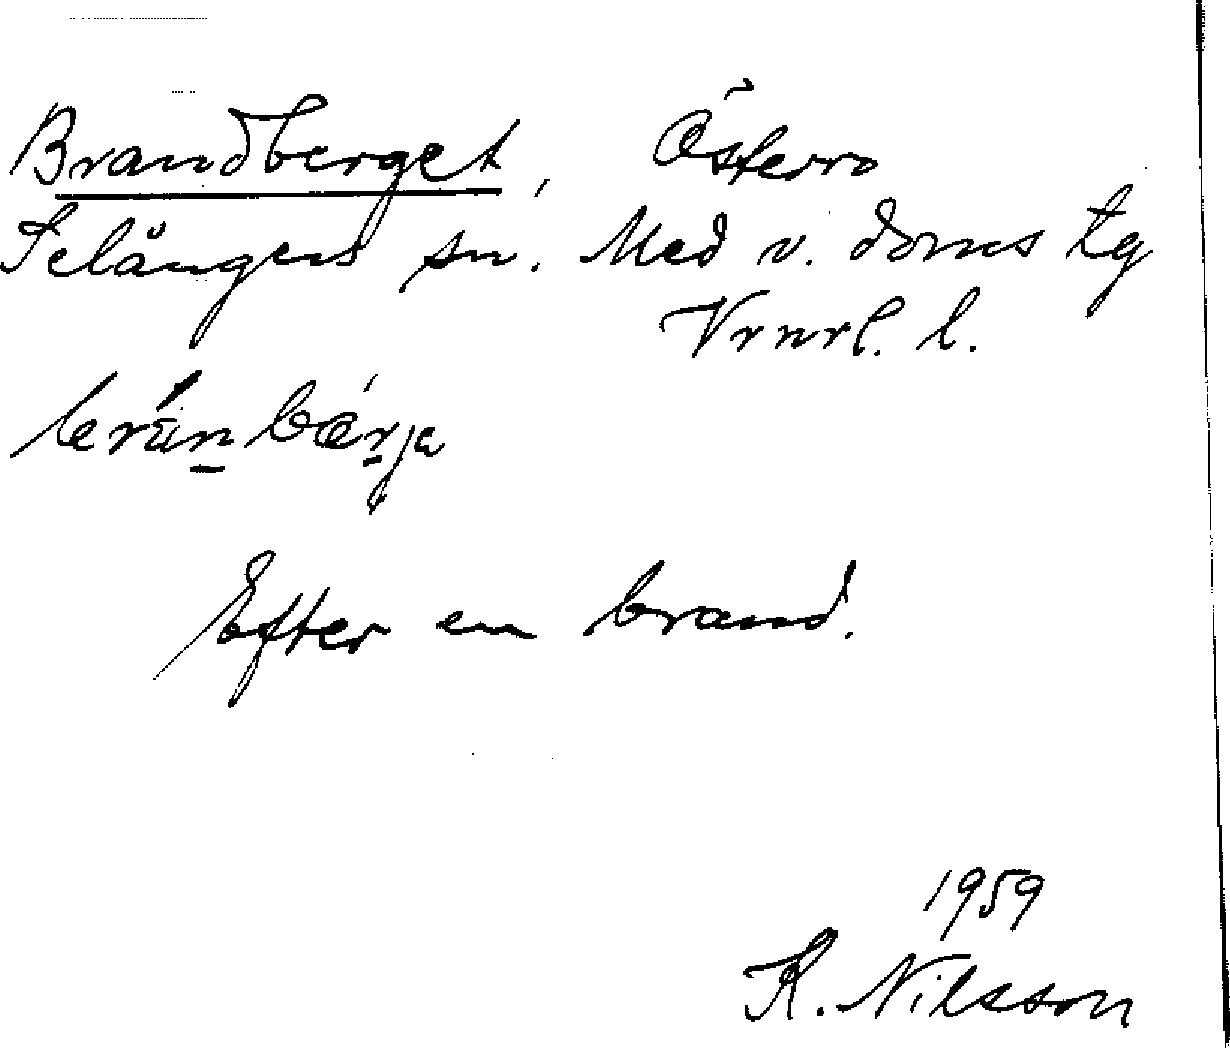 Brandberget, Österro
Selångers sn. Med v. doms tg
Vrnrl. l.
Efter en brand.
1959
K. Nilsson